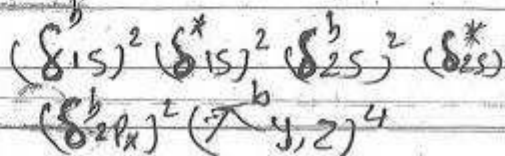 (δᵇ1s)² (δ*1s)² (δᵇ2s)² (δ*2s)
(δᵇ2Pₓ)² (πᵇ y,z)⁴